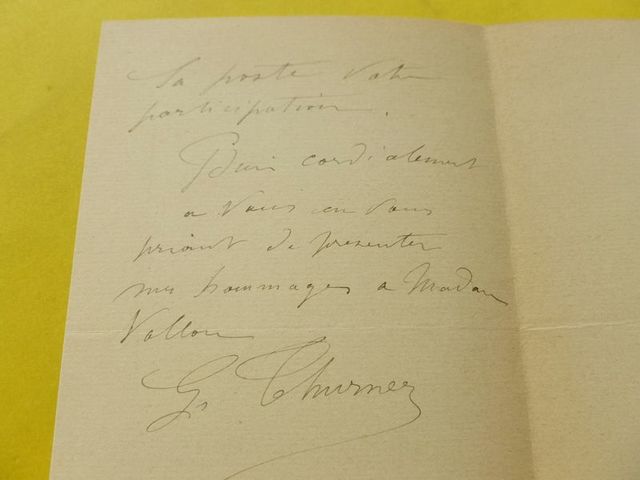 la poste votre
participation.
Bien cordialement
a vous en vous
priant de presenter
mes hommages a Madame
Vallon
G. Thurner